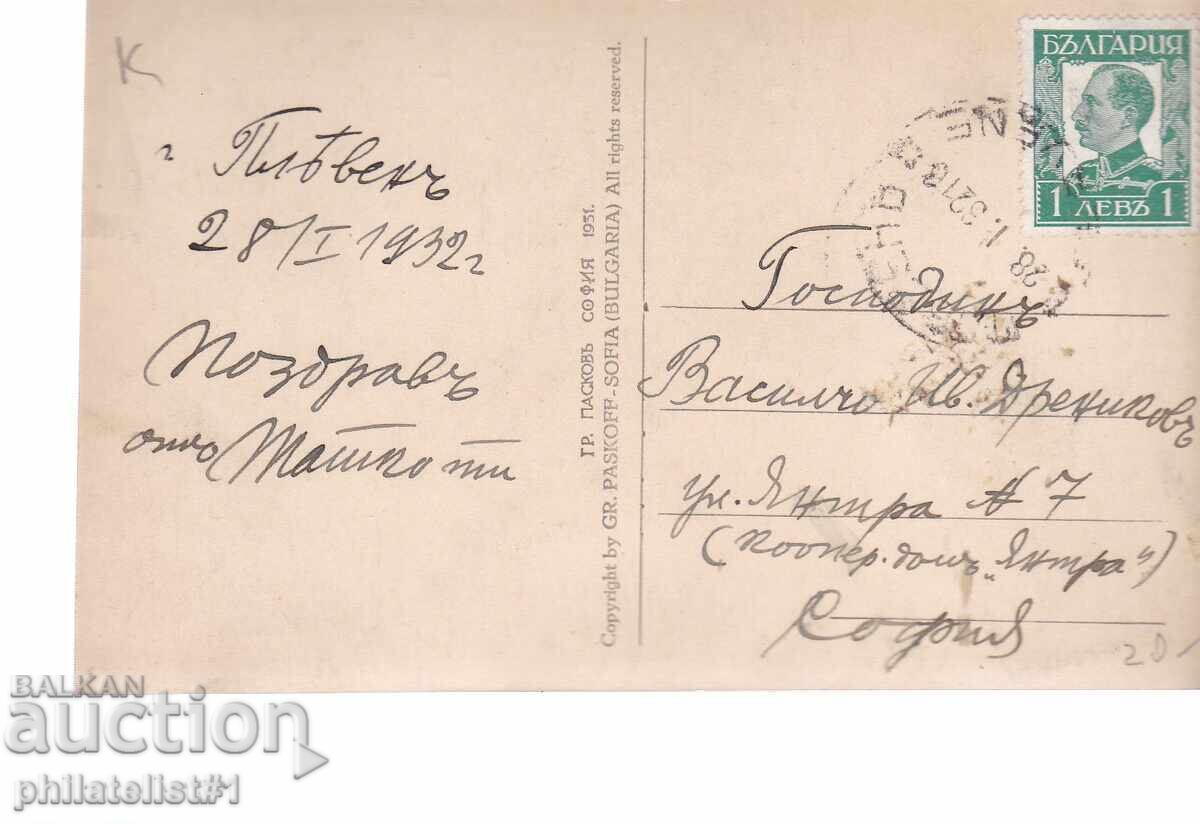 К
г Плѣвенъ
28/I 1932 г
Поздравъ
отъ Ташко ти
ГР. ПАСКОВЪ СОФИЯ 1931.
Copyright by GR. PASKOFF-SOFIA (BULGARIA) All rights reserved.
БЪЛГАРИЯ
1 ЛЕВЪ 1
28. I. 32 18
Господинъ
Василчо Ив. Дрениковъ
ул. Янтра № 7
(коопер. домъ „Янтра")
София
20
BALKAN
auction
philatelist#1